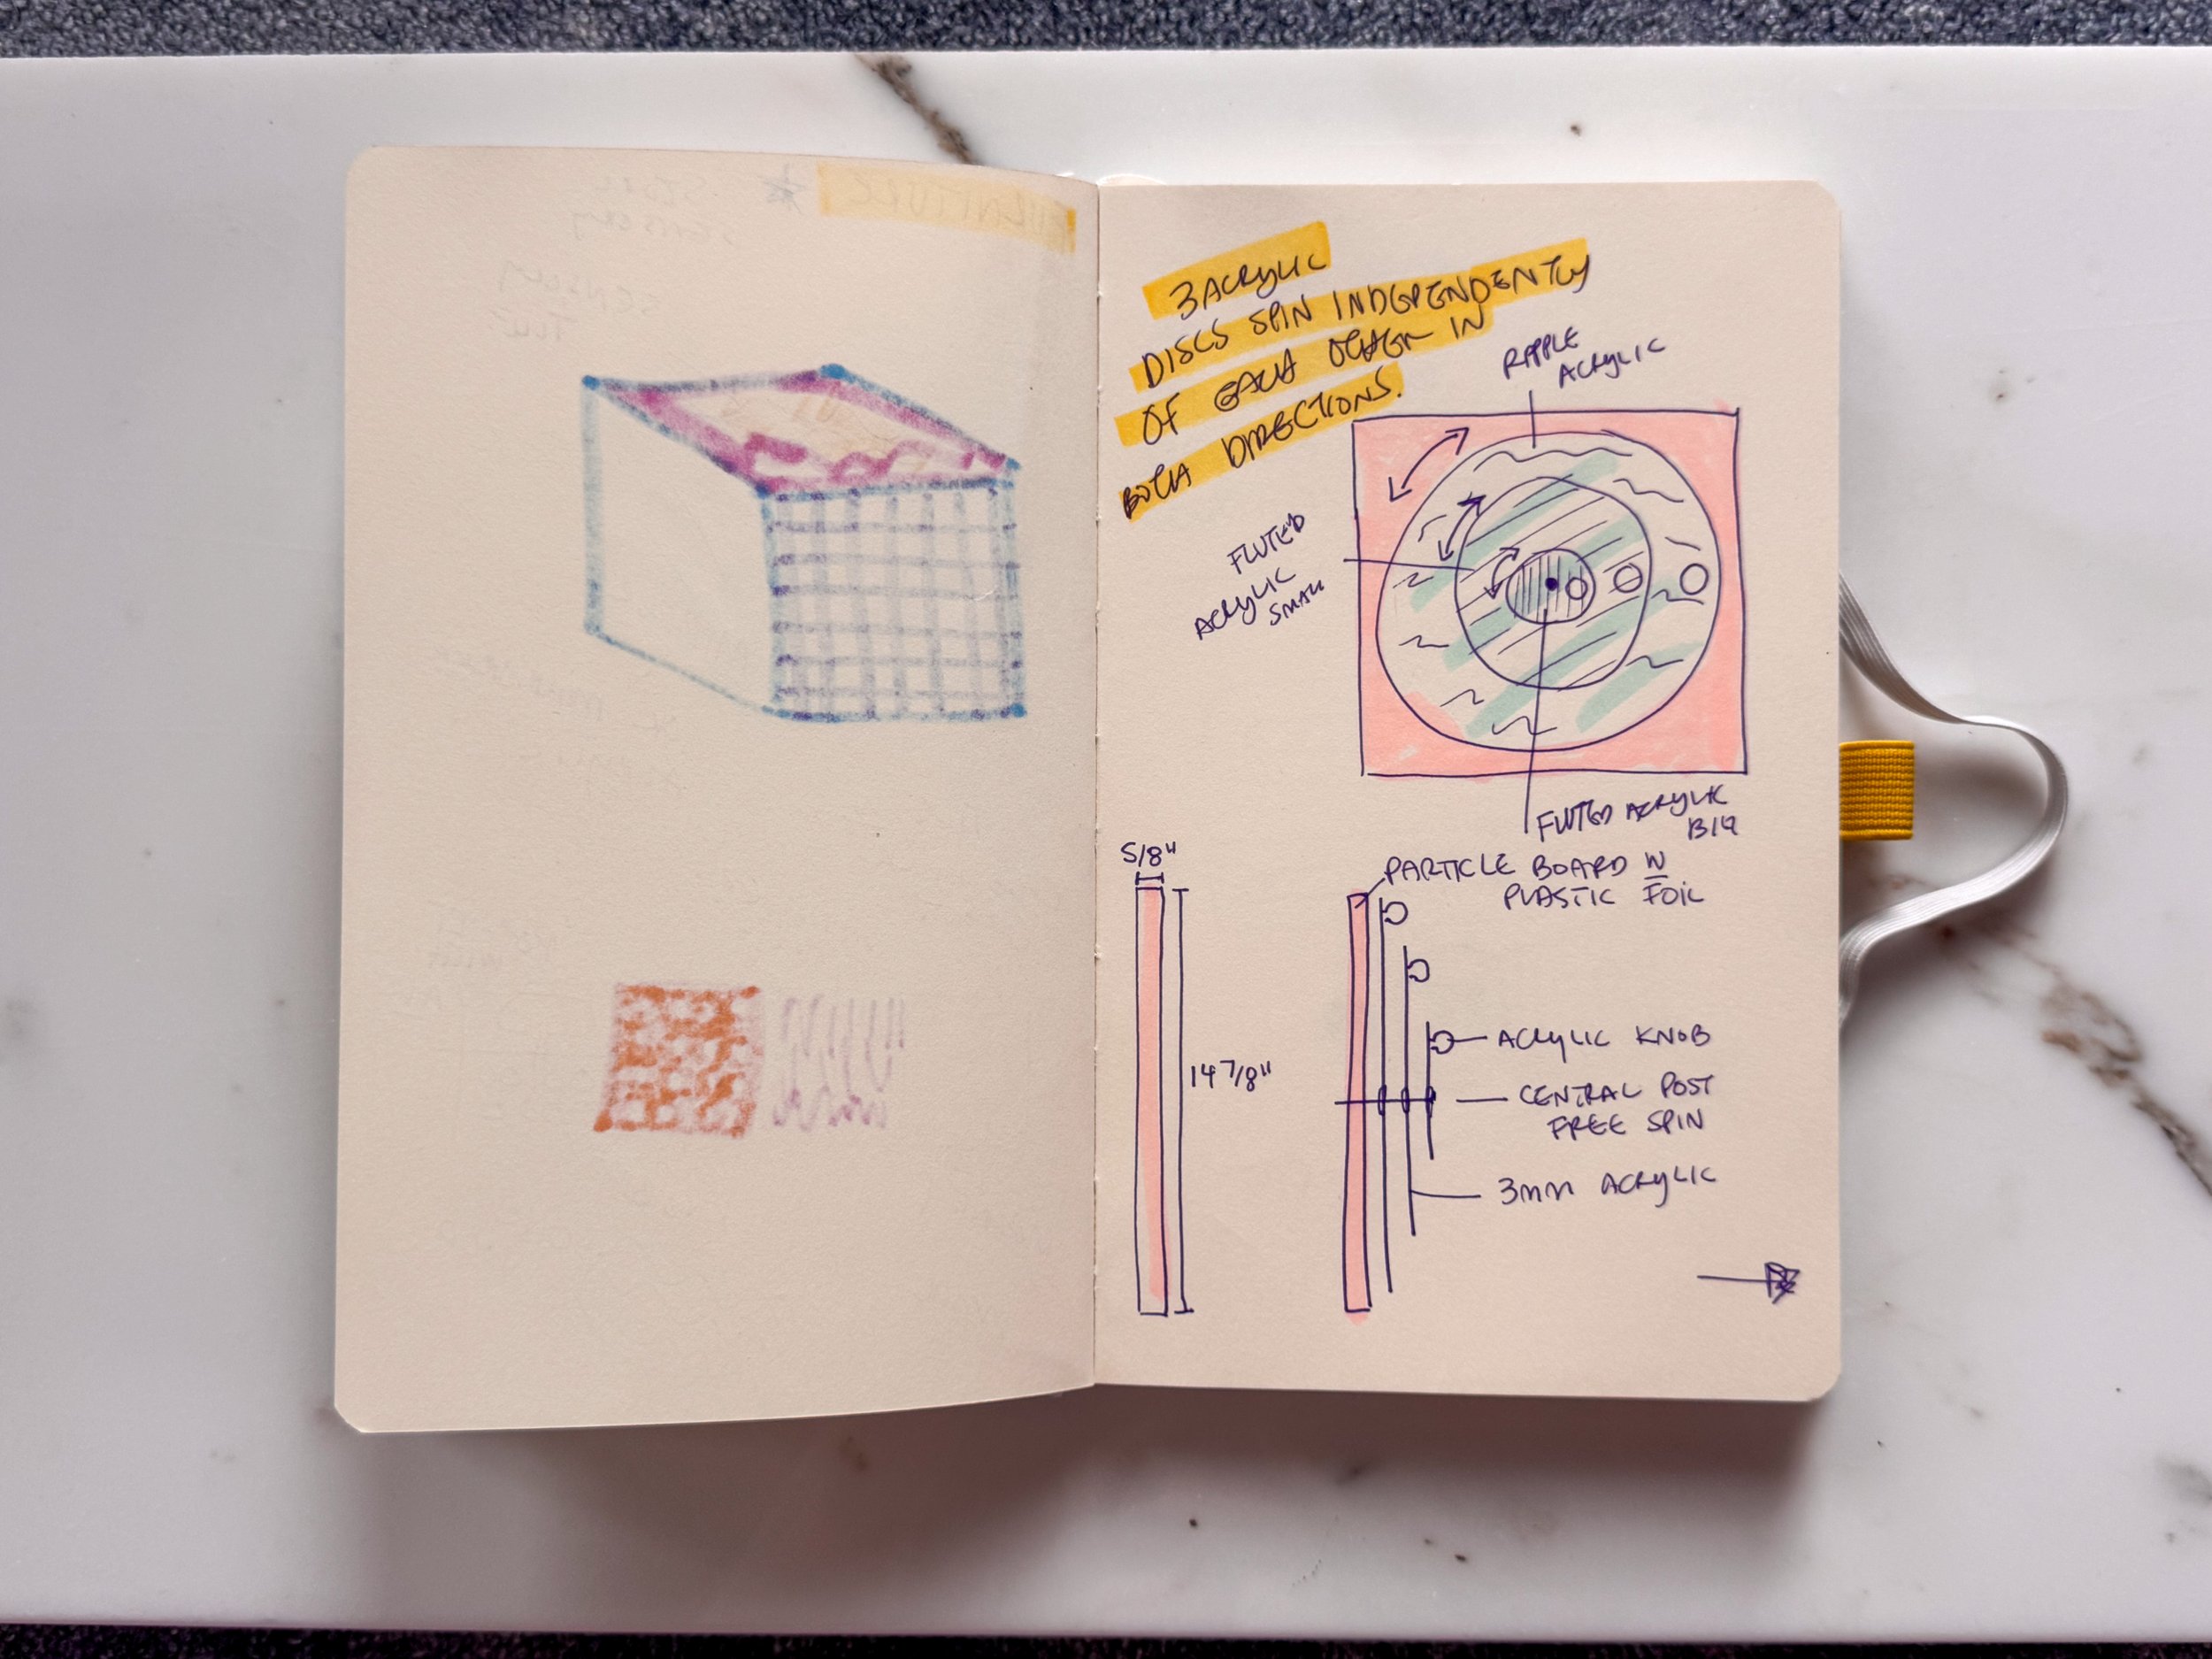 3 ACRYLIC
DISCS SPIN INDEPENDENTLY
OF EACH OTHER IN
BOTH DIRECTIONS.
RIPPLE
ACRYLIC
FLUTED
ACRYLIC
SMALL
FLUTED ACRYLIC
BIG
5/8"
14 7/8"
PARTICLE BOARD W
PLASTIC FOIL
ACRYLIC KNOB
CENTRAL POST
FREE SPIN
3MM ACRYLIC